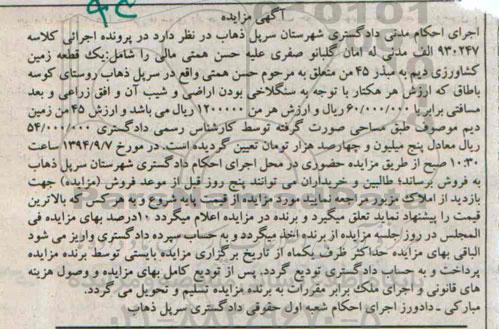 آگهی مزایده
اجرای احکام مدنی دادگستری شهرستان سرپل ذهاب در نظر دارد در پرونده اجرائی کلاسه
۹۳۰۲۴۷ الف مدنی له امان گلبانو صفری علیه حسن همتی مالی را شامل:یک قطعه زمین
کشاورزی دیم به مبذر ۴۵ من متعلق به مرحوم حسن همتی واقع در سرپل ذهاب روستای کوسه
باطاق که ارزش هر هکتار با توجه به سنگلاخی بودن اراضی و شیب آن و افق زراعی و بعد
مسافتی برابر با ۶۰/۰۰۰/۰۰۰ ریال و ارزش هر من ۱۲۰۰۰۰۰ ریال می باشد و ارزش ۴۵ من زمین
دیم موصوف طبق مساحی صورت گرفته توسط کارشناس رسمی دادگستری ۵۴/۰۰۰/۰۰۰
ریال معادل پنج میلیون و چهارصد هزار تومان تعیین گردیده است. در مورخ ۱۳۹۴/۹/۷ ساعت
۱۰:۳۰ صبح از طریق مزایده حضوری در محل اجرای احکام دادگستری شهرستان سرپل ذهاب
به فروش برساند؛ طالبین و خریداران می توانند پنج روز قبل از موعد فروش (مزایده) جهت
بازدید از املاک مزبور مراجعه نمایید مورد مزایده از قیمت پایه شروع و به هر کسی که بالاترین
قیمت را پیشنهاد نماید تعلق میگیرد و برنده در مزایده اعلام میگردد ۱۰درصد بهای مزایده فی
المجلس در روز جلسه مزایده از برنده اخذ میگردد و به حساب سپرده دادگستری واریز می شود
الباقی بهای مزایده حداکثر ظرف یکماه از تاریخ برگزاری مزایده بایستی توسط برنده مزایده
پرداخت و به حساب دادگستری تودیع گردد. پس از تودیع کامل بهای مزایده و وصول هزینه
های قانونی و اجرای ملک برابر مقررات به برنده مزایده تسلیم و تحویل می گردد.
مبارکی ـ دادورز اجرای احکام شعبه اول حقوقی دادگستری سرپل ذهاب